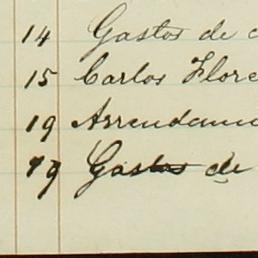 14 Gastos de
15 Carlos Flore
19 Arrendami
19 Gastos de